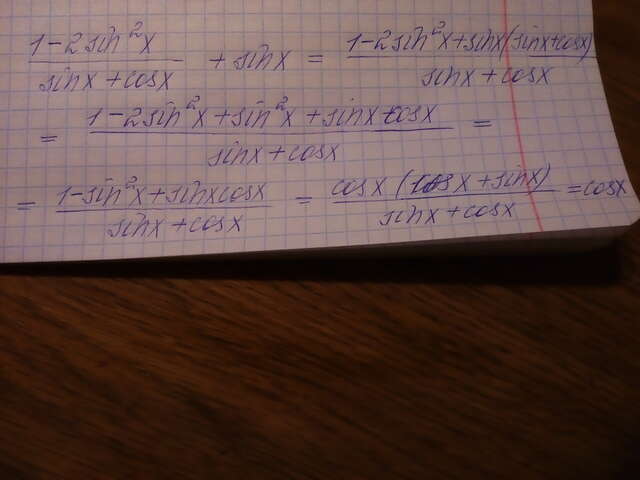 (1-2sin²x)/(sinx+cosx) + sinx = (1-2sin²x+sinx(sinx+cosx))/(sinx+cosx)
= (1-2sin²x+sin²x+sinxcosx)/(sinx+cosx) =
= (1-sin²x+sinxcosx)/(sinx+cosx) = (cosx(cosx+sinx))/(sinx+cosx) = cosx